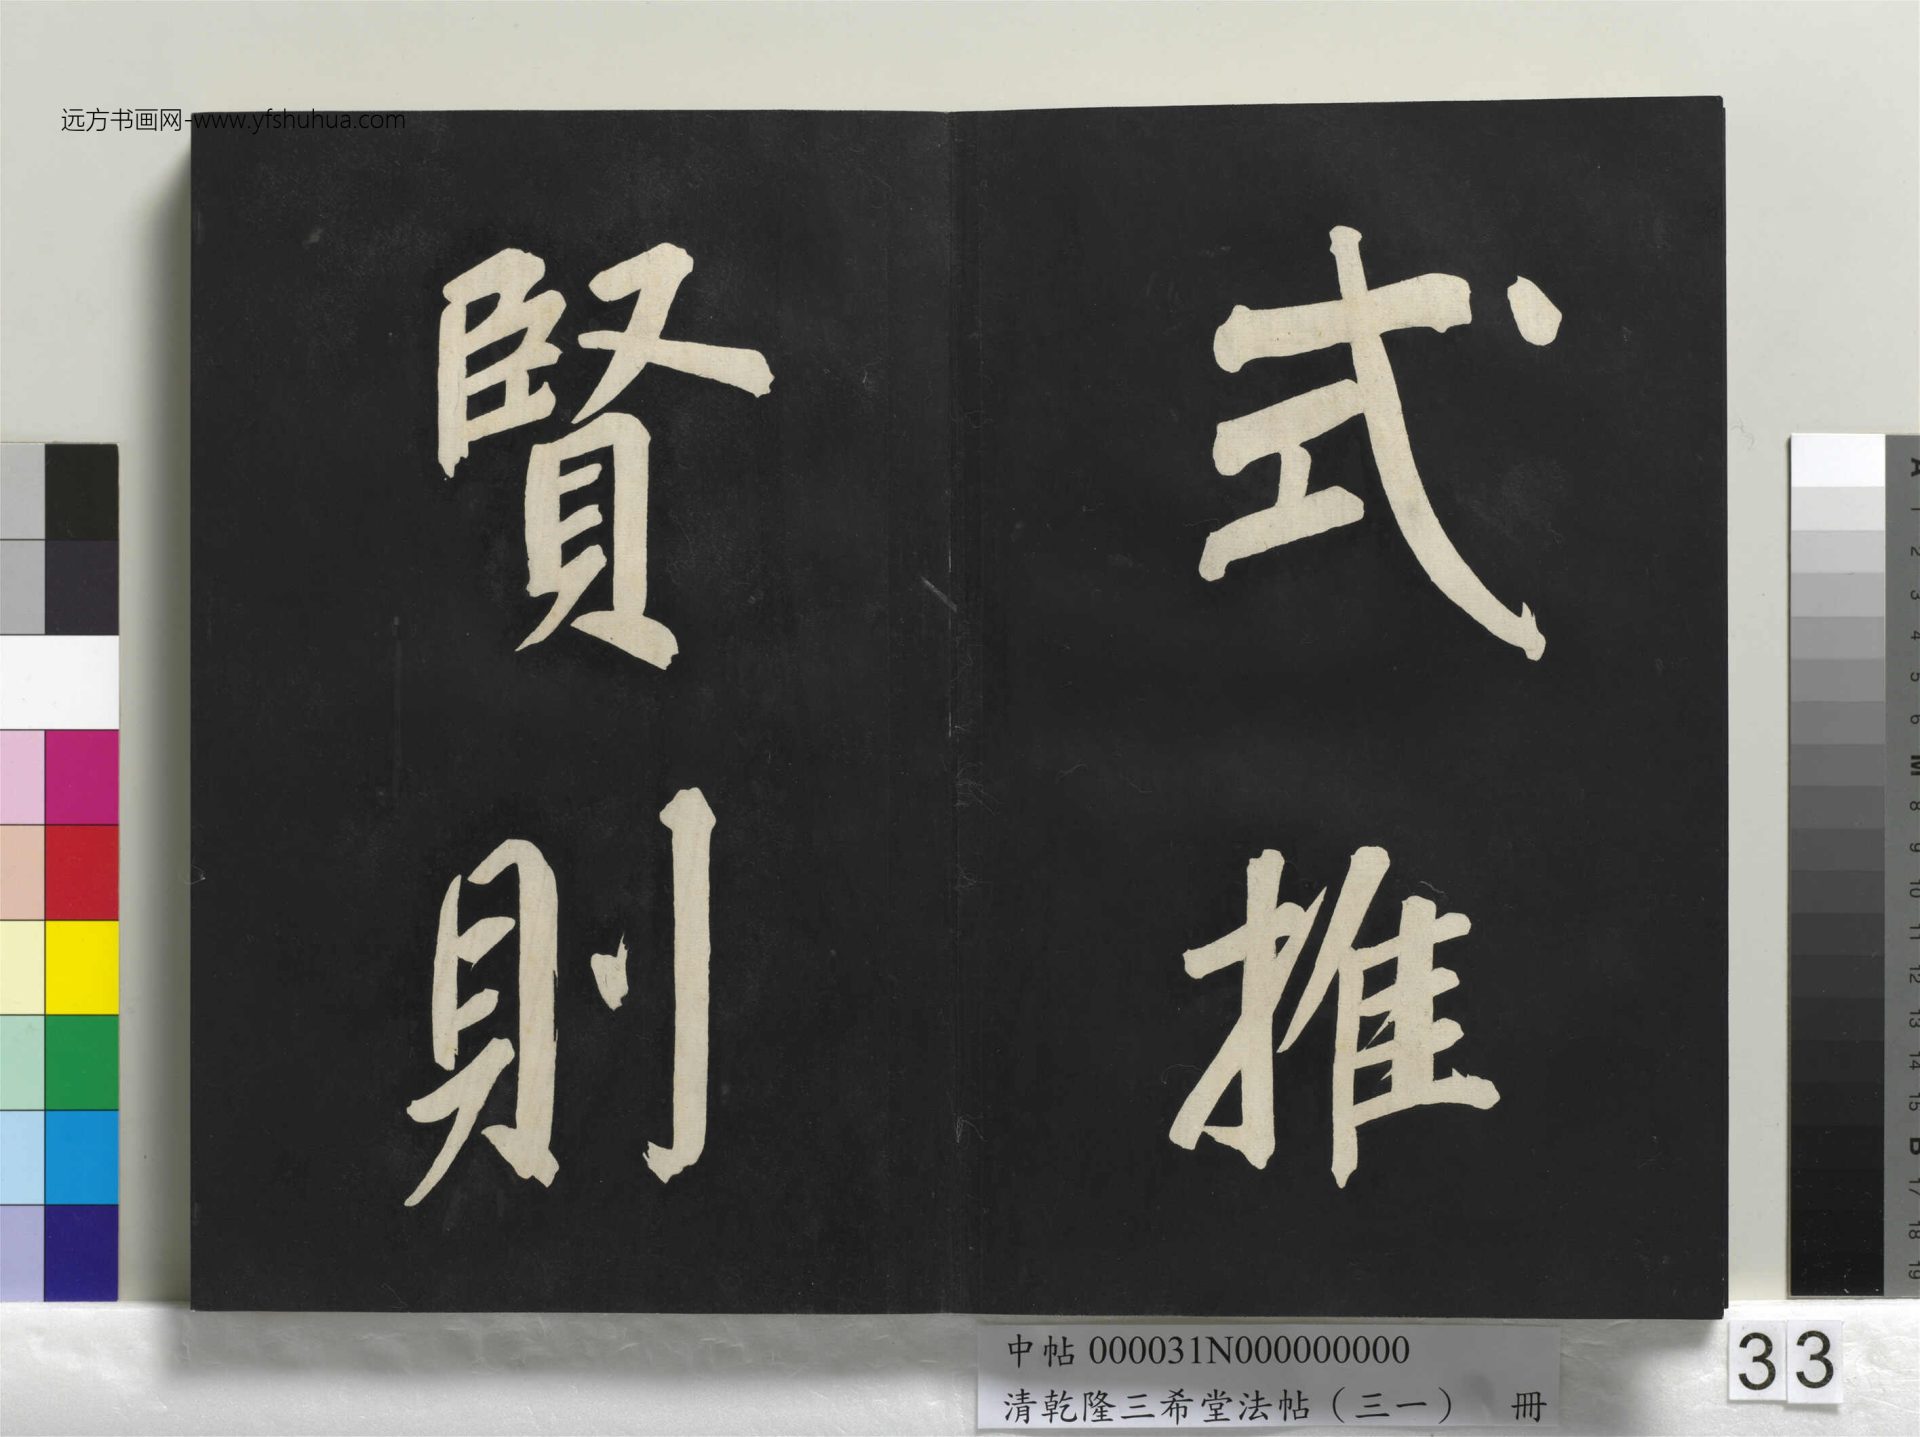 远方书画网-www.yfshuhua.com
式推
賢則
中帖 000031N000000000
清乾隆三希堂法帖（三一） 冊
33
A
1
2
3
4
5
6
M
8
9
10
11
12
13
14
15
B
17
18
19